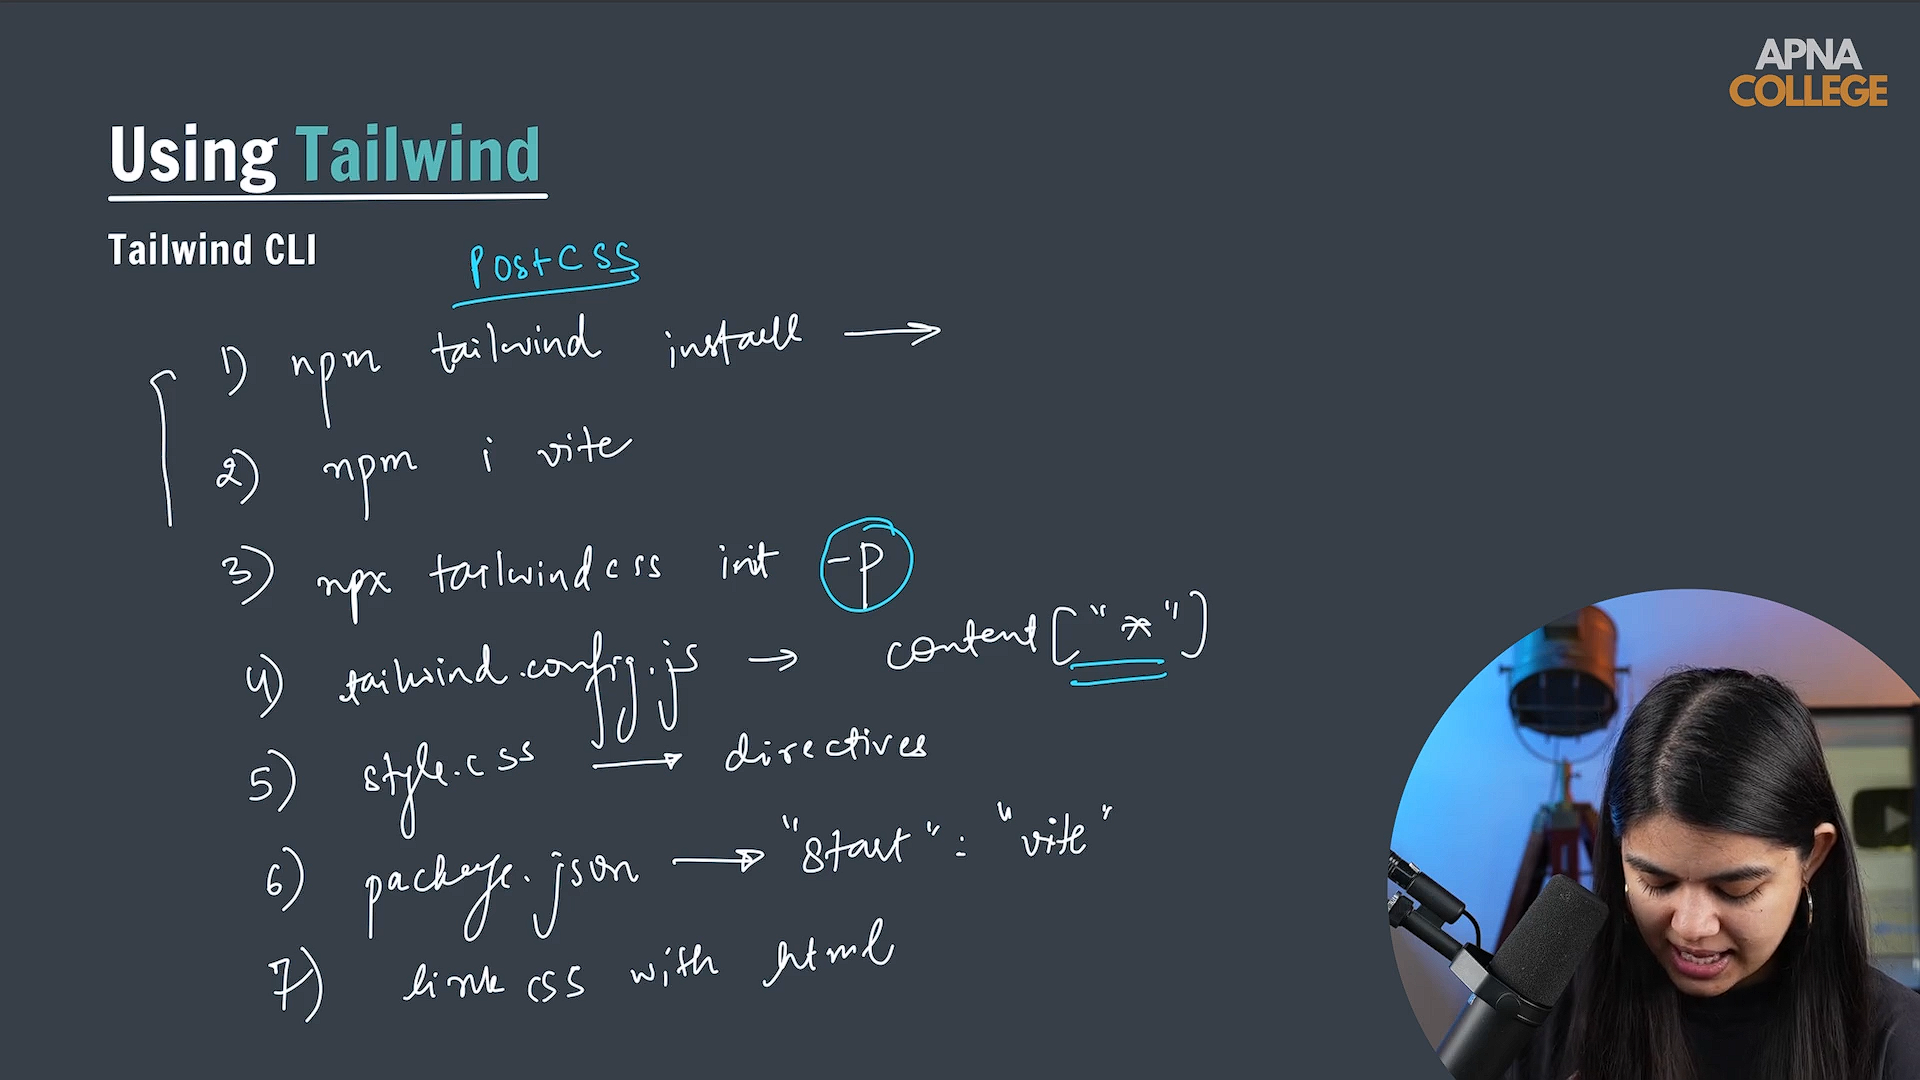 APNA
COLLEGE
Using Tailwind
Tailwind CLI
PostCSS
1) npm tailwind install →
2) npm i vite
3) npx tailwindcss init -p
4) tailwind.config.js → content["*"]
5) style.css → directives
6) package.json → "start" : "vite"
7) link css with html